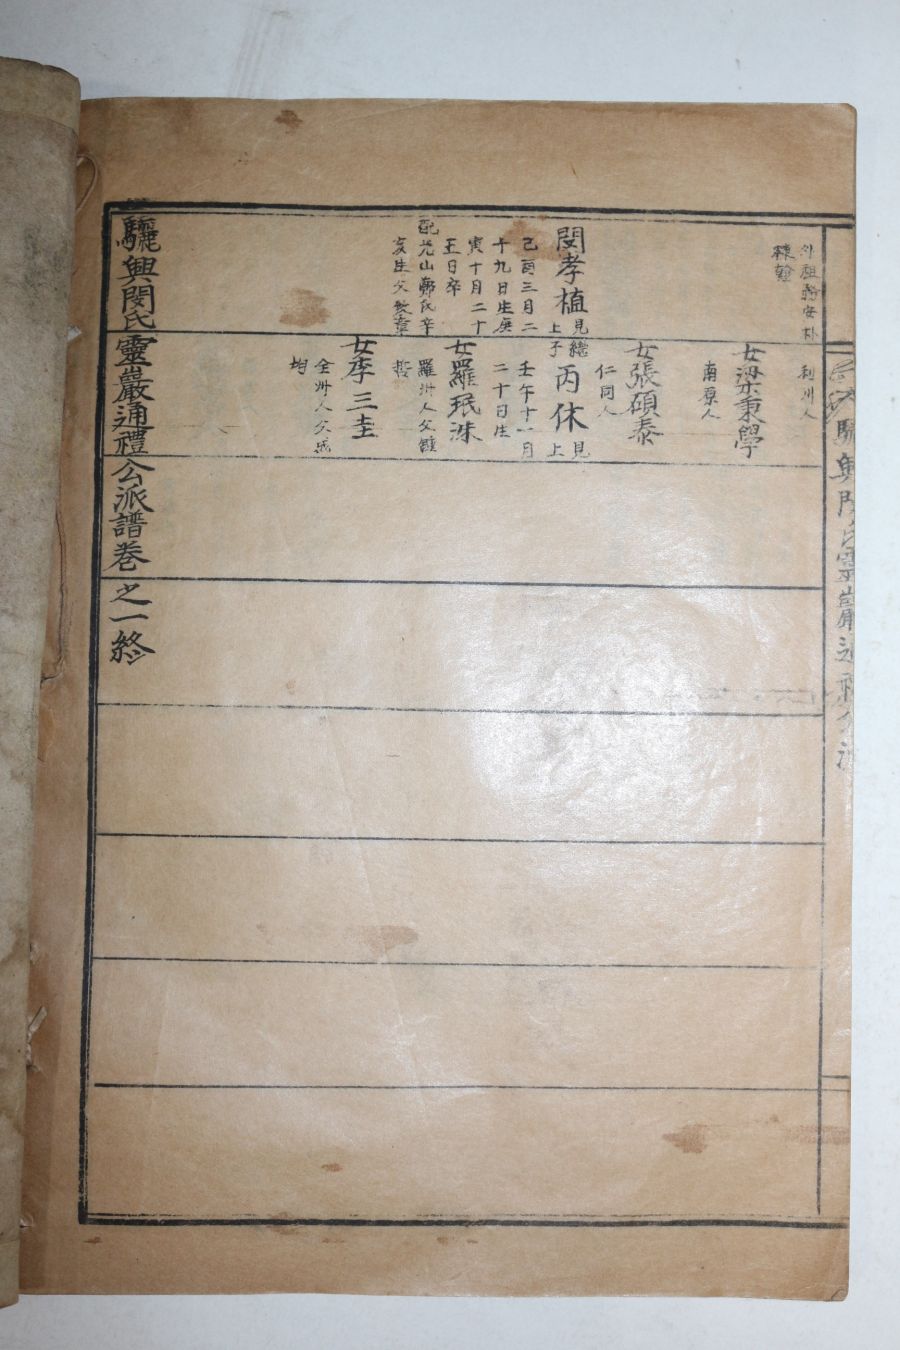 驪興閔氏靈巖通禮公派
外祖務安朴
閔孝植見總上
己酉三月二
十九日生庚
寅十月二十
五日卒
配光山鄭氏辛
亥生父
利川人
女梁秉學
南原人
女張碩泰
仁同人
子丙休見上
壬午十一月
二十日生
女羅珉洙
羅州人父鍾
女李三圭
全州人父
均
驪興閔氏靈巖通禮公派譜卷之一終